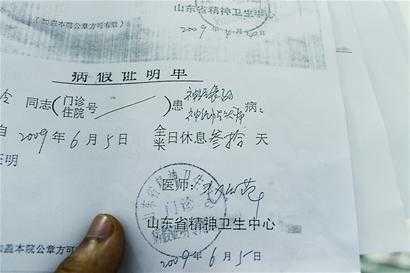 （加盖本院公章方可有效）
山东省精神卫生中心
病假证明单
同志（门诊 住院 号 ）患 神经衰弱 病：
自 2009 年 6 月 5 日 全 半 日休息 叁拾 天
证明
医师：
山东省精神卫生中心
加盖本院公章方可
2009 年 6 月 5 日